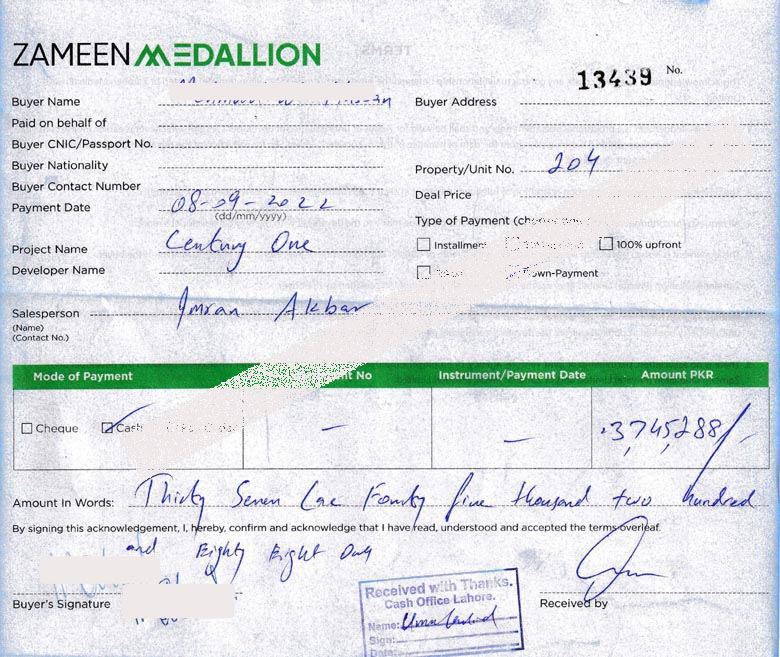 ZAMEEN MEDALLION
13439 No.
Buyer Name
Buyer Address
Paid on behalf of
Buyer CNIC/Passport No.
Buyer Nationality
Property/Unit No. 204
Buyer Contact Number
Deal Price
Payment Date 08-09-2022
(dd/mm/yyyy)
Type of Payment
Project Name Century One
Installment 100% upfront
Developer Name
Salesperson Imran Akbar
(Name)
(Contact No.)
Mode of Payment No Instrument/Payment Date Amount PKR
Cheque Cash — — 3,745,288/-
Amount In Words: Thirty Seven Lac Fourty five thousand two hundred
By signing this acknowledgement, I, hereby, confirm and acknowledge that I have read, understood and accepted the terms overleaf.
and Eighty Eight Only
Received with Thanks.
Cash Office Lahore.
Buyer's Signature
Received by
Name:
Sign:
Date: